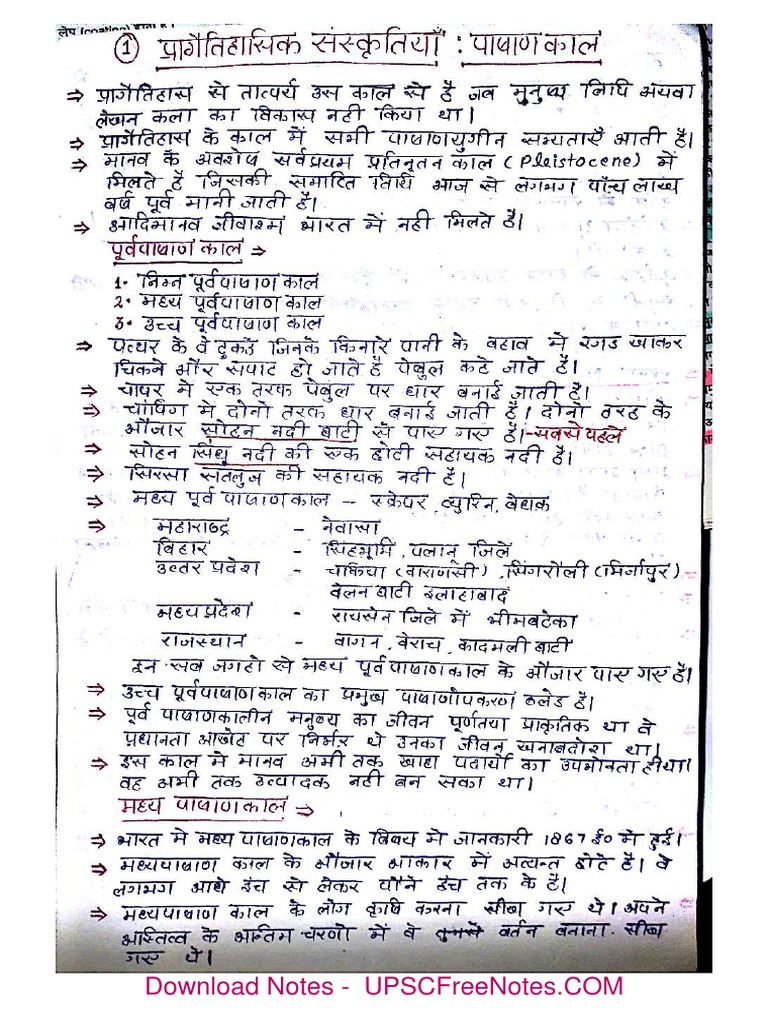 लेप (coating) होता है।
① प्रागैतिहासिक संस्कृतियाँ : पाषाण काल
⇒ प्रागैतिहास से तात्पर्य उस काल से है जब मनुष्य लिपि अथवा
लेखन कला का विकास नहीं किया था।
⇒ प्रागैतिहास के काल में सभी पाषाणयुगीन सभ्यताएँ आती है।
⇒ मानव के अवशेष सर्वप्रथम प्रतिनूतन काल (Pleistocene) में
मिलते है जिसकी समाप्ति तिथि आज से लगभग पाँच लाख
वर्ष पूर्व मानी जाती है।
⇒ आदिमानव जीवाश्म भारत में नही मिलते है।
पूर्वपाषाण काल ⇒
1· निम्न पूर्वपाषाण काल
2· मध्य पूर्वपाषाण काल
3· उच्च पूर्वपाषाण काल
⇒ पत्थर के वे टूकडे जिनके किनारे पानी के बहाव में रगड खाकर
चिकने और सपाट हो जाते है पेबुल कहे जाते है।
⇒ चापर मे एक तरफ पेबुल पर धार बनाई जाती है।
⇒ चॉपिंग में दोनो तरफ धार बनाई जाती है। दोनो तरह के
औजार सोहन नदी घाटी से पाए गए है।-सबसे पहले
⇒ सोहन सिंधु नदी की एक छोटी सहायक नदी है।
⇒ सिरसा सतलुज की सहायक नदी है।
⇒ मध्य पूर्व पाषाण काल -- स्क्रेपर, ब्युरिन, बेधक
⇒ महाराष्ट्र - नेवासा
बिहार - सिंहभूमि, पलामू जिले
उत्तर प्रदेश - चकिया (वाराणसी), सिंगरौली (मिर्जापुर)
बेलन घाटी इलाहाबाद
मध्य प्रदेश - रायसेन जिले में भीमबटेका
राजस्थान - बागन, बेराच, कादमली घाटी
इन सब जगहो से मध्य पूर्वपाषाणकाल के औजार पाए गए है।
⇒ उच्च पूर्वपाषाणकाल का प्रमुख पाषाणोपकरण ब्लेड है।
⇒ पूर्व पाषाणकालीन मनुष्य का जीवन पूर्णतया प्राकृतिक था वे
प्रधानता आखेट पर निर्भर थे उनका जीवन खनाबदोश था।
⇒ इस काल मे मानव अभी तक खाद्य पदार्थो का उपभोक्ता ही था।
वह अभी तक उत्पादक नही बन सका था।
मध्य पाषाण काल ⇒
⇒ भारत मे मध्य पाषाणकाल के विषय मे जानकारी 1867 ई० मे हुई।
⇒ मध्यपाषाण काल के औजार आकार में अत्यन्त छोटे है। वे
लगभग आधे इंच से लेकर पौने इंच तक के है।
⇒ मध्यपाषाण काल के लोग कृषि करना सीख गए थे। अपने
अस्तित्व के अन्तिम चरणो में वे बर्तन बनाना सीख
गए थे।
Download Notes - UPSCFreeNotes.COM